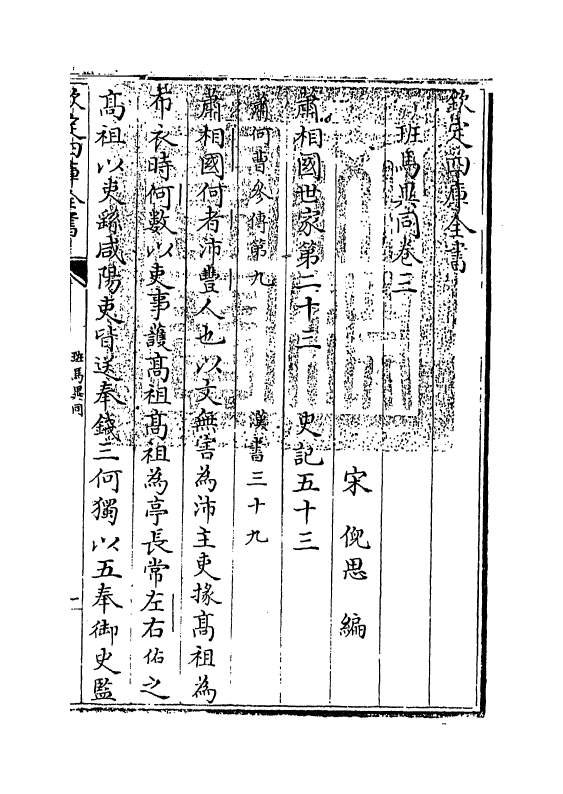 欽定四庫全書
班馬異同卷三
宋 倪思 編
蕭相國世家第二十三 史記五十三
蕭何曹參傳第九 漢書三十九
蕭相國何者沛豐人也以文無害為沛主吏掾髙祖為
布衣時何數以吏事護髙祖髙祖為亭長常左右佑之
髙祖以吏繇咸陽吏皆送奉錢三何獨以五奉御史監
欽定四庫全書
班馬異同
一